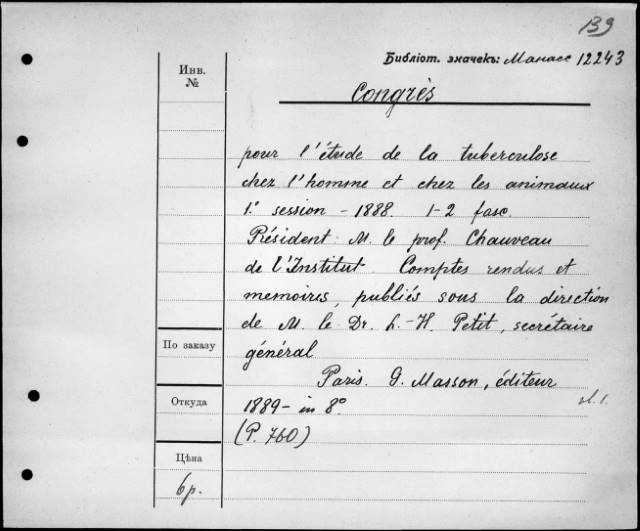 139
Библіот. значекъ: Манасс 12243
Инв.
№
Congrès
pour l'étude de la tuberculose
chez l'homme et chez les animaux
1.e session - 1888. 1-2 fasc.
Président M. le prof. Chauveau
de l'Institut. Comptes rendus et
memoires, publiés sous la direction
de M. le Dr. L.-H. Petit, secrétaire
général
По заказу
Paris. G. Masson, éditeur
Откуда
1889 - in 8°
(P. 760)
Цѣна
6 р.